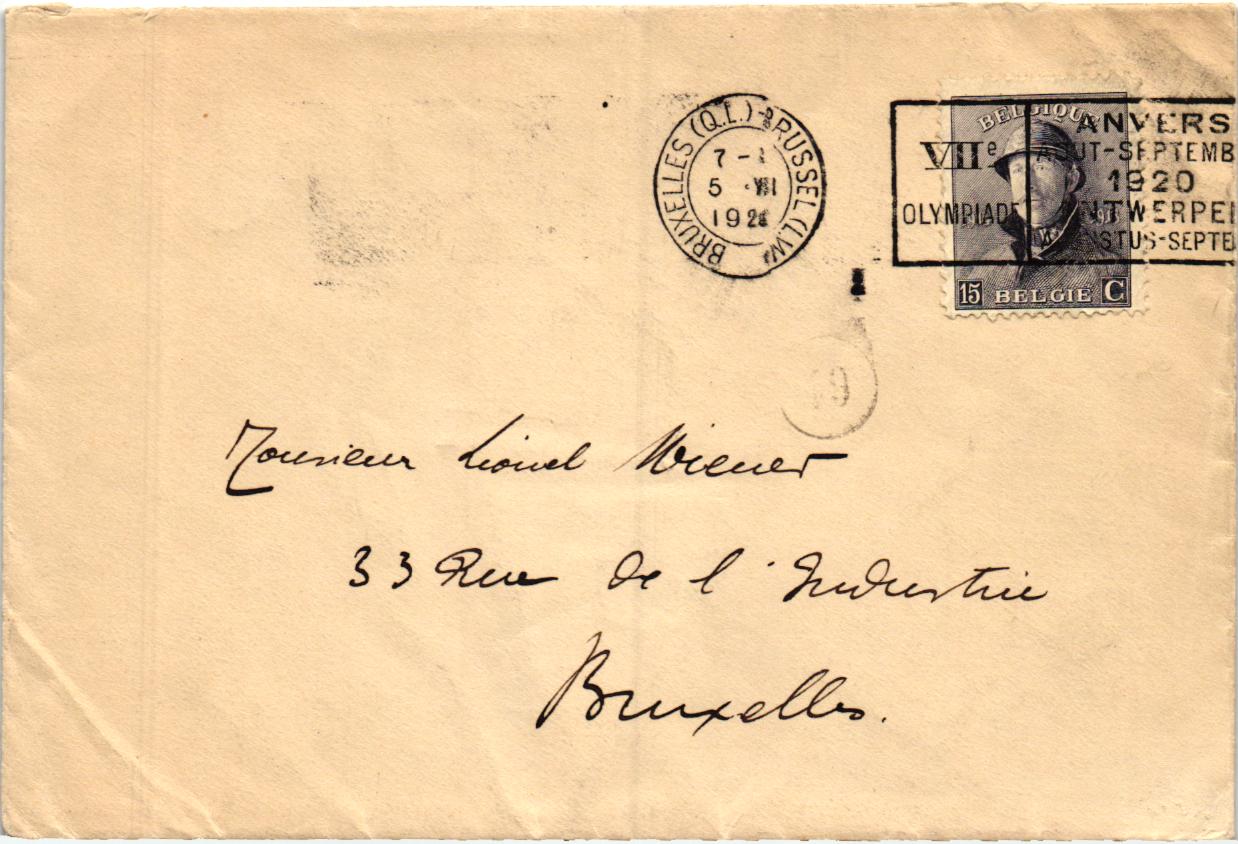 BRUXELLES (Q.L.) BRUSSEL (L.W.
7 -
5 VII
192
VIIe
OLYMPIADE
ANVERS
AOUT-SEPTEMB
1920
ANTWERPEN
STUS-SEPTE
BELGIQUE
15 BELGIE C
19
Monsieur Lionel Wiener
33 Rue de l'Industrie
Bruxelles.